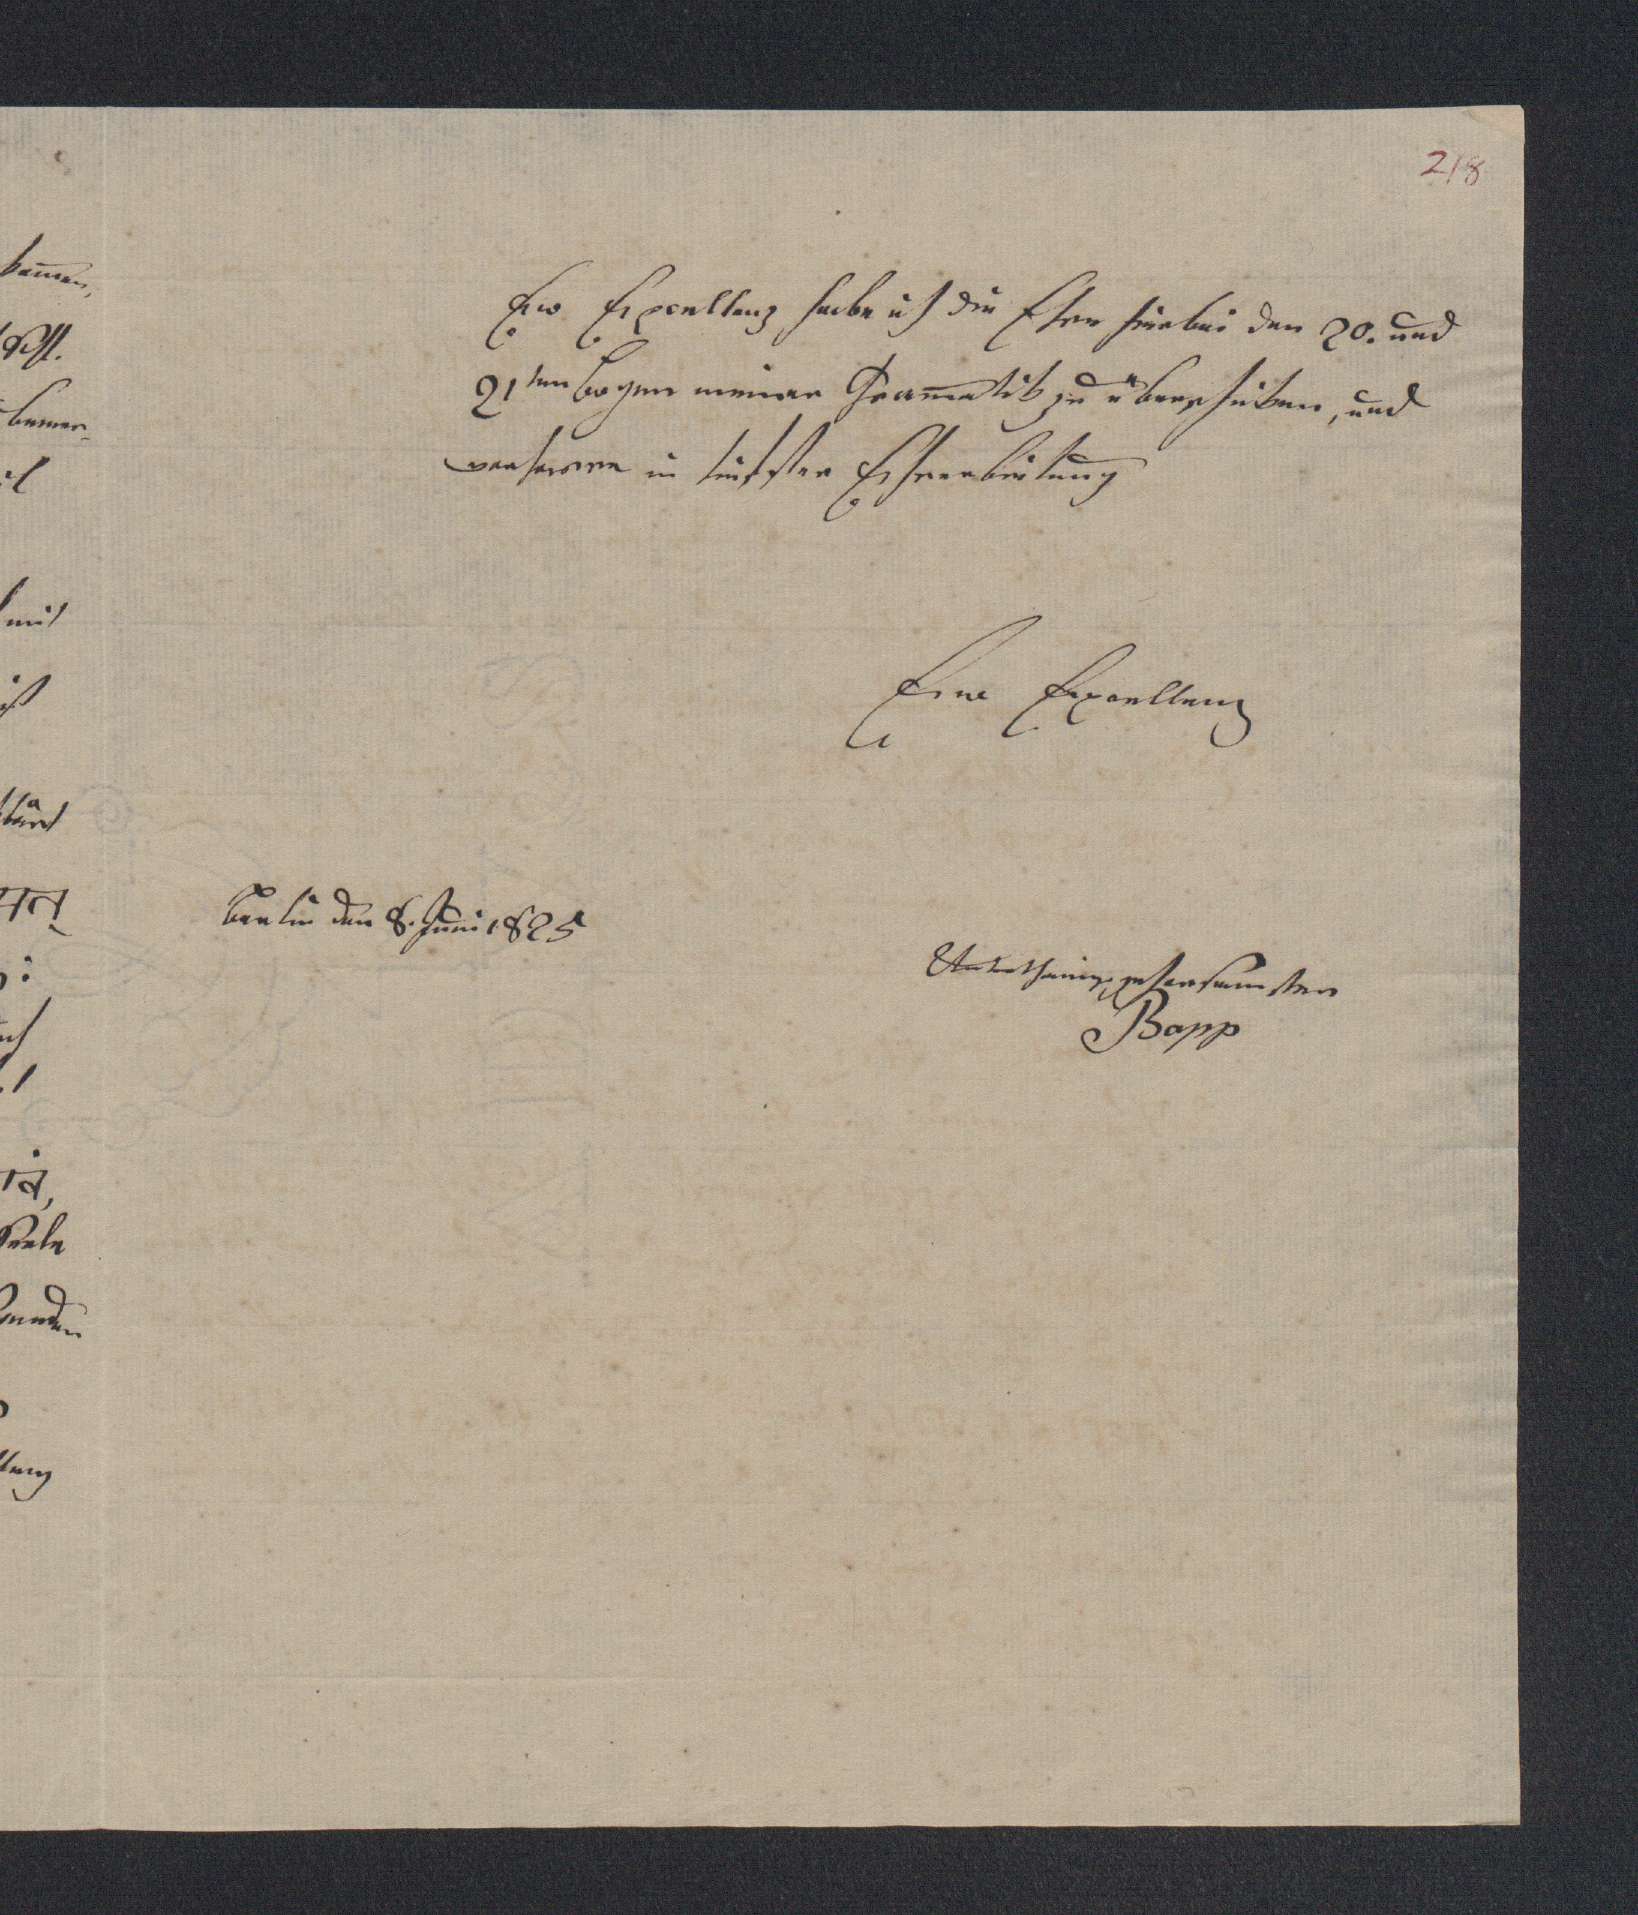 218
Ew Excellenz habe ich die Ehre hierbei den 20. und
21ten Bogen meiner Gram̅atik zu überschicken, und
verharre in tiefster Ehrerbietung
Eure Excellenz
Berlin den 8. Juni 1825
Unterthänig gehorsamster
Bopp
mit